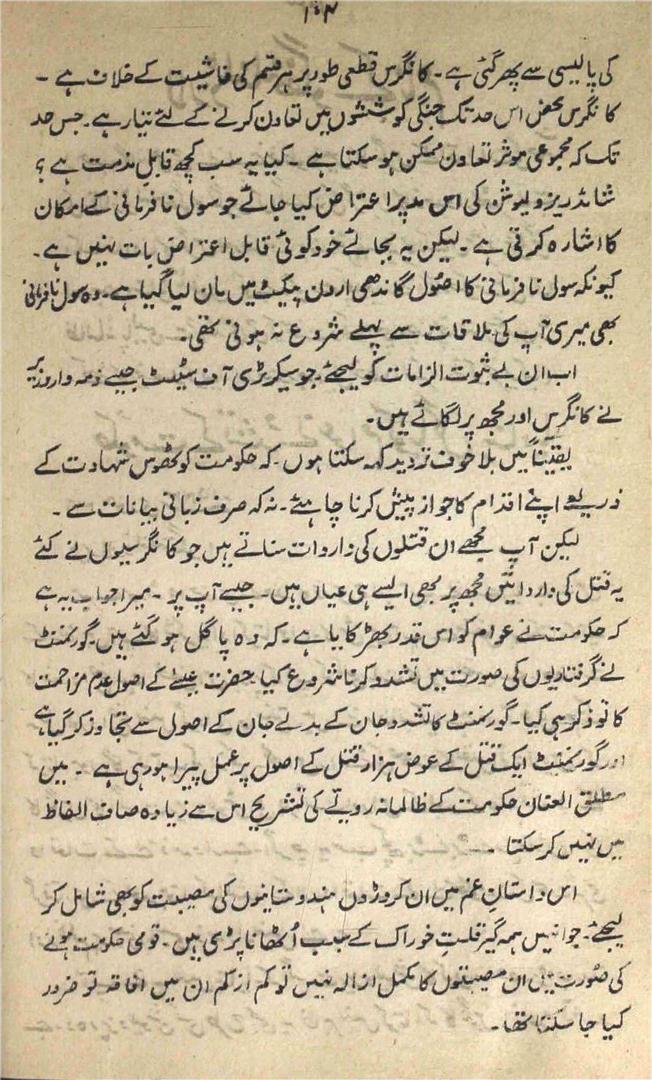 ۱۰۴
کی پالیسی سے پھر گئی ہے۔ کانگرس قطعی طور پر ہر قسم کی فاشیت کے خلاف ہے ۔
کانگرس محض اس حد تک جنگی کوششوں میں تعاون کرنے کے لئے تیار ہے۔ جس حد
تک کہ مجموعی موثر تعاون ممکن ہو سکتا ہے ۔ کیا یہ سب کچھ قابلِ مذمت ہے ؟
شائد ریزولیوشن کی اس مد پر اعتراض کیا جائے جو سول نافرمانی کے امکان
کا اشارہ کرتی ہے ۔ لیکن یہ بجائے خود کوئی قابل اعتراض بات نہیں ہے۔
کیونکہ سول نافرمانی کا اصول گاندھی ارون پیکٹ میں مان لیا گیا ہے۔ وہ سول نافرمانی
بھی میری آپ کی ملاقات سے پہلے شروع نہ ہوئی تھی۔
اب ان بے ثبوت الزامات کو لیجئے۔ جو سیکرٹری آف سٹیٹ جیسے ذمہ وار وزیر
نے کانگرس اور مجھ پر لگائے ہیں۔
یقیناً میں بلا خوف تردید کہہ سکتا ہوں۔ کہ حکومت کو ٹھوس شہادت کے
ذریعے اپنے اقدام کا جواز پیش کرنا چاہئے۔ نہ کہ صرف زبانی بیانات سے ۔
لیکن آپ مجھے ان قتلوں کی واردات سناتے ہیں جو کانگرسیوں نے کئے
یہ قتل کی وارداتیں مجھ پر بھی ایسے ہی عیاں ہیں۔ جیسے آپ پر ۔ میرا جواب یہ ہے
کہ حکومت نے عوام کو اس قدر بھڑکایا ہے۔ کہ وہ پاگل ہو گئے ہیں۔ گورنمنٹ
نے گرفتاریوں کی صورت میں تشدد کرنا شروع کیا حضرت عیسٰے کے اصول عدم مزاحمت
کا تو ذکر ہی کیا۔ گورنمنٹ کا تشدد جان کے بدلے جان کے اصول سے تجاوز کر گیا ہے
اور گورنمنٹ ایک قتل کے عوض ہزار قتل کے اصول پر عمل پیرا ہو رہی ہے ۔ میں
مطلق العنان حکومت کے ظالمانہ رویے کی تشریح اس سے زیادہ صاف الفاظ
میں نہیں کر سکتا ۔
اس داستانِ غم میں ان کروڑوں ہندوستانیوں کی مصیبت کو بھی شامل کر
لیجئے۔ جو انہیں ہمہ گیر قلتِ خوراک کے سبب اُٹھانا پڑی ہیں۔ قومی حکومت ہونے
کی صورت میں ان مصیبتوں کا مکمل ازالہ نہیں تو کم از کم ان میں افاقہ تو ضرور
کیا جا سکتا تھا۔